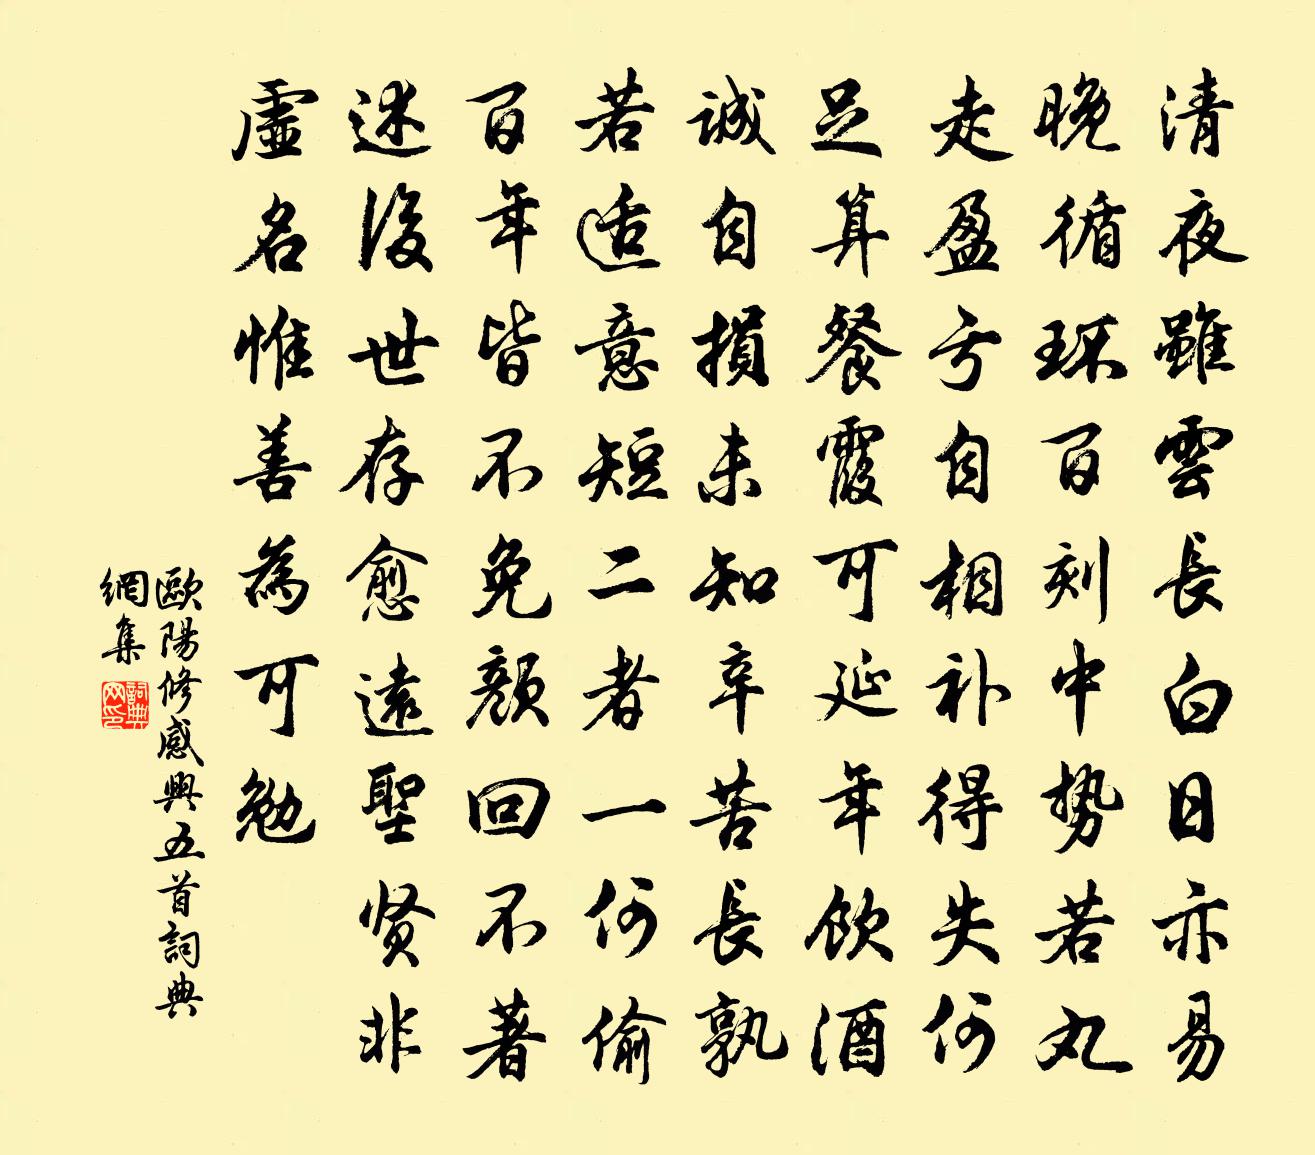 清夜雖雲長白日亦易
晚循环百刻中势若丸
走盈亏自相补得失何
足算餐霞可延年飲酒
誠自損未知辛苦長孰
若适意短二者一何偷
百年皆不免顏回不著
述後世存愈遠聖贤非
虛名惟善為可勉
歐陽修感興五首詞典
網集
詞典
网印